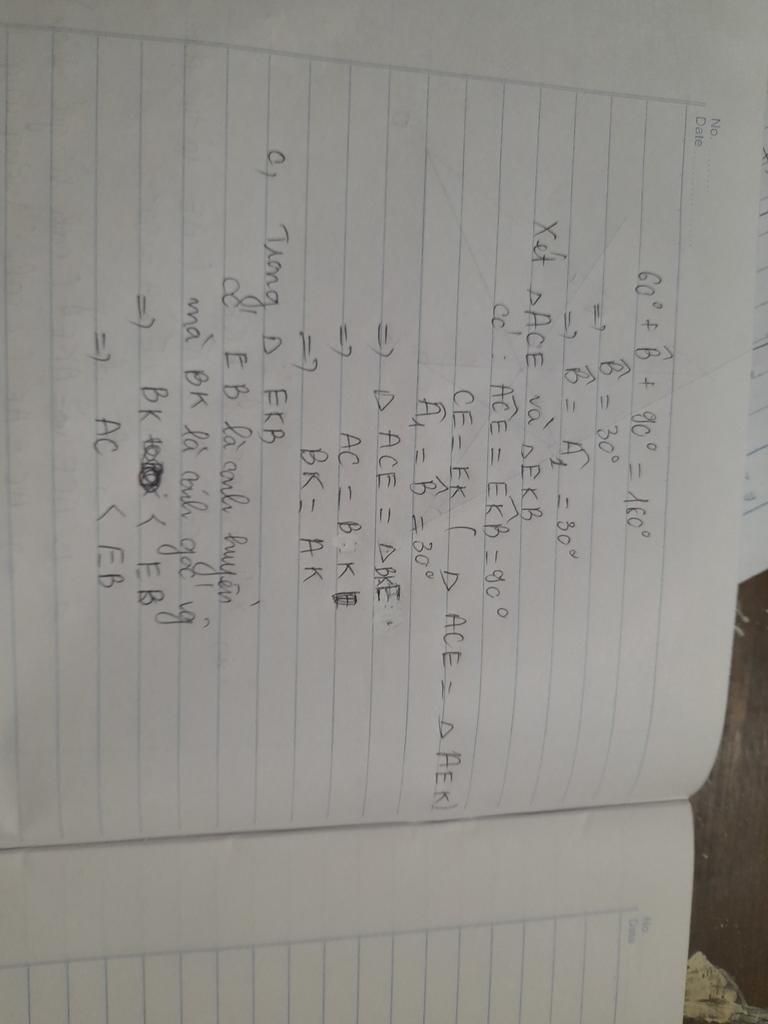 No.
Date
60° + B̂ + 90° = 160°
=> B̂ = 30°
=> B̂ = Â₁ = 30°
Xét △ACE và △EKB
có: ACE = EKB = 90°
CE = EK (△ACE = △AEK)
Â₁ = B̂ = 30°
=> △ACE = △BKE
=> AC = BK
=> BK = AK
c, Trong △EKB
có EB là cạnh huyền
mà BK là cạnh góc
=> BK < EB
=> AC < EB
No.
Date